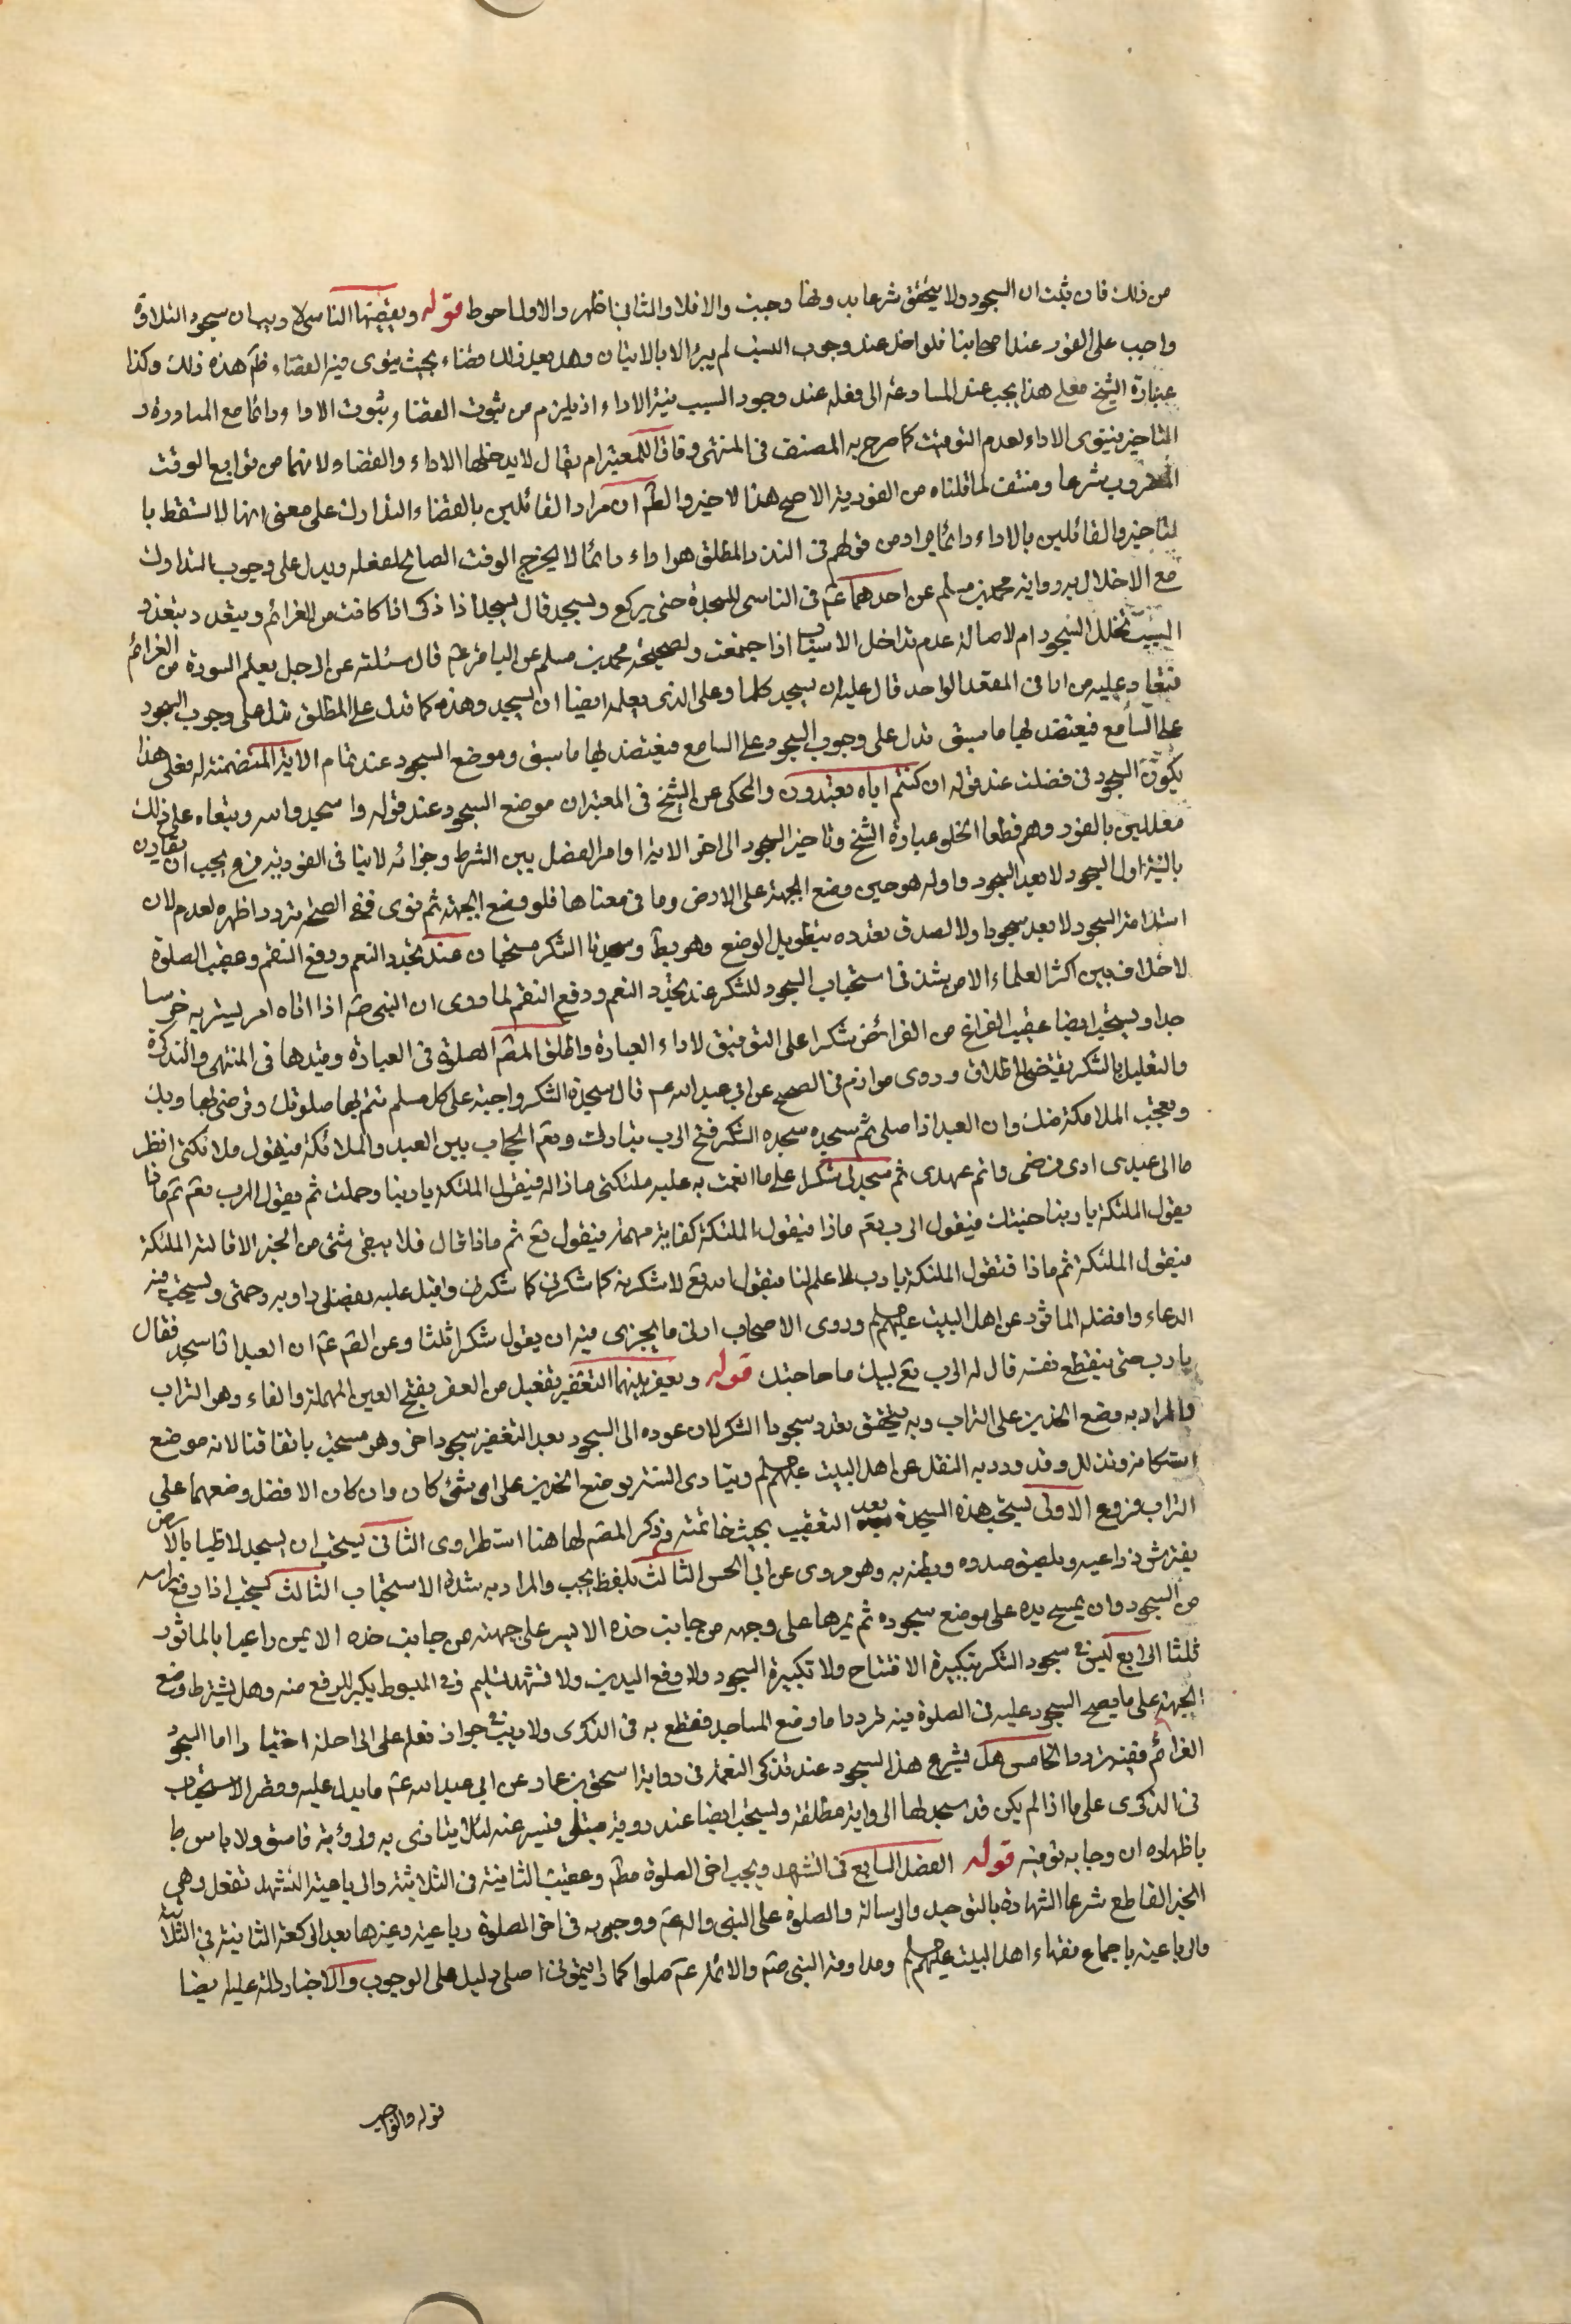 من ذلك فان ثبت ان السجود ولا يتحقق شرعا بدونها وجبت والا فلا والثاني اظهر والاول احوط قوله ويقضيها الناسي لا ريب ان سجود التلاوة
واجب على الفور عند اصحابنا فلو اخل عند وجوب السبب لم يبرء الا بالاتيان وهل يعد ذلك قضاء بحيث ينوى فيه القضاء ظ هذه ذلك وكذا
عبارة الشيخ فعلى هذا يجب عند المسارعة الى فعله عند وجود السبب نية الاداء اذ يلزم من ثبوت القضاء ثبوت الاداء دائما مع المبادرة و
التاخير فينوى الاداء لعدم التوقيت كما صرح به المصنف في المنتهى وفاقا للمعتبر ام يقال لا يدخلها الاداء والقضا ولانهما من توابع الوقت
المضروب شرعا ومنتف لما قلناه من الفورية الاصح هذا لاخير والظ ان مراد القائلين بالقضاء التدارك على معنى انها لا تسقط با
لتاخير والقائلين بالاداء دائما يراد من قولهم في النذر المطلق هو اداء دائما لا يخرج الوقت الصالح لفعله ويدل على وجوب التدارك
مع الاخلال به رواية محمد بن مسلم عن احدهما ع في الناسي للسجدة حتى يركع ويسجد قال يسجد اذا ذكر اذا كانت من العزائم ويتعدد بتعدد
السبب تخلل السجود ام لا صالة عدم تداخل الاسباب اذا اجتمعت ولصحيحة محمد بن مسلم عن الباقر ع قال سئلته عن الرجل يعلم السورة من العزائم
فتعاد عليه مرارا في المقعد الواحد قال عليه ان يسجد كلما وعلى الذي يعلمه ايضا ان يسجد وهذه كما تدل على المطلق تدل على وجوب السجود
على السامع فيعتضد بها ما سبق تدل على وجوب السجود على السامع فيعتضد بها ما سبق وموضع السجود عند تمام الاية المتضمنة له فعلى هذا
يكون السجود في فصلت عند قوله ان كنتم اياه تعبدون والمحكى عن الشيخ في المعتبر ان موضع السجود عند قوله واسجدوا لله وتبعاه على ذلك
معللين بالفور وهم قطعا لخلو عبارة الشيخ وتاخير السجود الى اخر الاية اوامر الفصل بين الشرط وجزائه لا ينافى الفورية فرع يجب ان يقارن
بالنية اول السجود لا بعد السجود واوله هو حين وضع الجبهة على الارض وما في معناها فلو وضع الجبهة ثم نوى ففي الصحة تردد اظهره لعدم لان
استدامة السجود لا يعد سجودا ولا لصدق تعدده بتطويل الوضع وهو بط وسجدتا الشكر مستحبان عند تجدد النعم ودفع النقم وعقيب الصلوة
لا خلاف بين اكثر العلماء الا من شذ في استحباب السجود للشكر عند تجدد النعم ودفع النقم لما روى ان النبي ص اذا اتاه امر يسر به خر سا
جدا ويستحب ايضا عقيب الفراغ من الفرائض شكرا على التوفيق لاداء العبادة واطلق المص الصلوة في العبادة وقيدها في المنتهى والتذكرة
والتعليل بالشكر يقتضي الاطلاق وروى مرازم في الصحيح عن ابي عبد الله ع قال سجدة الشكر واجبة على كل مسلم تتم بها صلوتك وترضى بها ربك
وتعجب الملائكة منك وان العبد اذا صلى ثم سجد سجدة الشكر فتح الرب تبارك وتع الحجاب بين العبد والملائكة فيقول ملائكتي انظر
ما الى عبدي ادى فرضى واتم عهدى ثم سجد لي شكرا على ما انعمت به عليه ملئكتى ماذا له فيقول الملئكة يا ربنا رحمتك ثم يقول الرب تع ثم ماذا
يقول الملئكة يا ربنا جنتك فيقول الرب تع ماذا فيقول الملئكة كفاية مهمه فيقول تع ثم ماذا قال فلا يبقى شئ من الخير الا قالته الملئكة
فيقول الملئكة ثم ماذا فتقول الملئكة يا رب لا علم لنا فيقول الله تع لاشكرنه كما شكرنى كما شكرنى واقبل عليه بفضلى واريه رحمتى ويستحب فيه
الدعاء وافضله الماثور عن اهل البيت عليهم السلم وروى الاصحاب ادنى ما يجزى فيه ان يقول شكرا ثلثا وعن القم ع ان العبد اذا سجد فقال
يا رب حتى ينقطع نفسه قال له الرب تع لبيك ما حاجتك قوله ويعفر بينهما التعفير تفعيل من العفر بفتح العين المهملة والفاء وهو التراب
والمراد به وضع الخدين على التراب وبه يتحقق تعدد سجود الشكر لان عوده الى السجود بعد التعفير سجود اخر وهو مستحب باتفاقنا لانه موضع
استكانة وتذلل وقد ورد به النقل عن اهل البيت عليهم السلم ويتادى السنة بوضع الخدين على اى شئ كان وان كان الافضل وضعهما على
التراب فروع الاولى يستحب هذه السجدة بعد التعقيب بحيث خاتمته فذكر المص لها هنا استطرادى الثاني يستحب ان يسجد لاطيا بالارض
يفترش ذراعيه ويلصق صدره وبطنه به وهو مروى عن ابي الحسن الثالث بلفظ يجب والمراد به شدة الاستحباب الثالث يستحب اذا رفع راسه
من السجود وان يمسح يده على موضع سجوده ثم يمرها على وجهه من جانب خده الايسر على جبهته من جانب خده الايمن داعيا بالماثور
ثلثا الرابع ليس في سجود الشكر تكبيرة الافتتاح ولا تكبيرة السجود ولا رفع اليدين ولا تشهد تسليم وفي المبسوط يكبر للرفع منه وهل يشترط وضع
الجبهة على ما يصح السجود عليه في الصلوة فيه تردد اما وضع المساجد فقطع به في الذكرى ولا ريب في جواز فعله على الراحلة اختيارا اما السجود
العزائم ففيه تردد الخامس هل يشرع هذا السجود عند تذكر النعمة في رواية اسحق بن عمار عن ابي عبد الله ع ما يدل عليه وقصر الاستحباب
في الذكرى على ما اذا لم يكن قد سجد لها الرواية مطلقة ويستحب ايضا عند رؤية مبتلى فيسره عنه لئلا يتاذى به ولرؤية فاسق ولا باس
باظهاره ان رجا به توبته قوله الفصل السابع في التشهد ويجب اخر الصلوة مط وعقيب الثانية في الثلاثية والرباعية التشهد تفعل وهي
الخبر القاطع شرعا الشهادة بالتوحيد والرسالة والصلوة على النبي واله ع ووجوبه في اخر الصلوة رباعية وغيرها بعد الركعة الثانية في الثلاثية
والرباعية باجماع فقهاء اهل البيت عليهم السلم ومداومة النبي ص والائمة ع صلوا كما رايتمونى اصلى دليل على الوجوب والاخبار دالة عليه ايضا
قوله والواجب